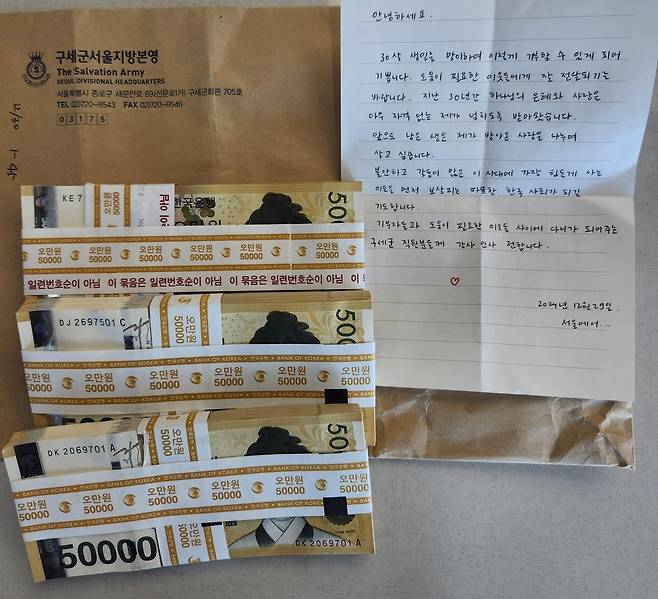 구세군서울지방본영
The Salvation Army
SEOUL DIVISIONAL HEADQUARTERS
서울특별시 종로구 새문안로 69(신문로1가) 구세군회관 705호
TEL 02)720-9543 FAX 02)720-9546
03175
12/30
1-45
안녕하세요.
30살 생일을 맞이하여 이렇게 기부할 수 있게 되어
기쁩니다. 도움이 필요한 이웃들에게 잘 전달되기를
바랍니다. 지난 30년간 하나님의 은혜와 사랑은
아무 자격 없는 제가 넘치도록 받아왔습니다.
앞으로 남은 생은 제가 받아온 사랑을 나누며
살고 싶습니다.
불안하고 갈등이 많은 이 시대에 가장 힘든게 사는
이들을 먼저 보살피는 따뜻한 한국 사회가 되길
기도합니다.
기부자들과 도움이 필요한 이웃들 사이에 다리가 되어주는
구세군 직원분들께 감사 인사 전합니다.
♡
2024년 12월 29일.
서울에서...
KE 7
한국은행
500
BANK OF KOREA 한국은행 BANK OF KOREA 한국은행 BANK OF KOREA
오만원 오만원 오만원 오만원 오만원 오만원
50000 50000 50000 50000 50000 50000
일련번호순이 아님 이 묶음은 일련번호순이 아님 이 묶음은 일련번호순이 아님 이 묶
DJ 2697501 C
오만원
50000
500
BANK OF KOREA 한국은행 BANK OF KOREA 한국은행 BANK OF KOREA
오만원 오만원 오만원 오만원 오만원
50000 50000 50000 50000 50000
DK 2069701 A
오만원
50000
50
BANK OF KOREA 한국은행 BANK OF KOREA 한국은행 BANK OF KOREA
오만원 오만원 오만원 오만원 오만원
50000 50000 50000 50000 50000
50000
오만원
50000
DK 2069701 A